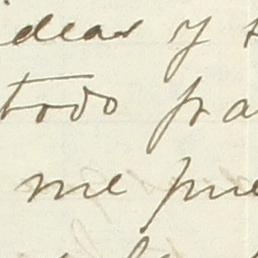 ideas y
todo pa
me pue